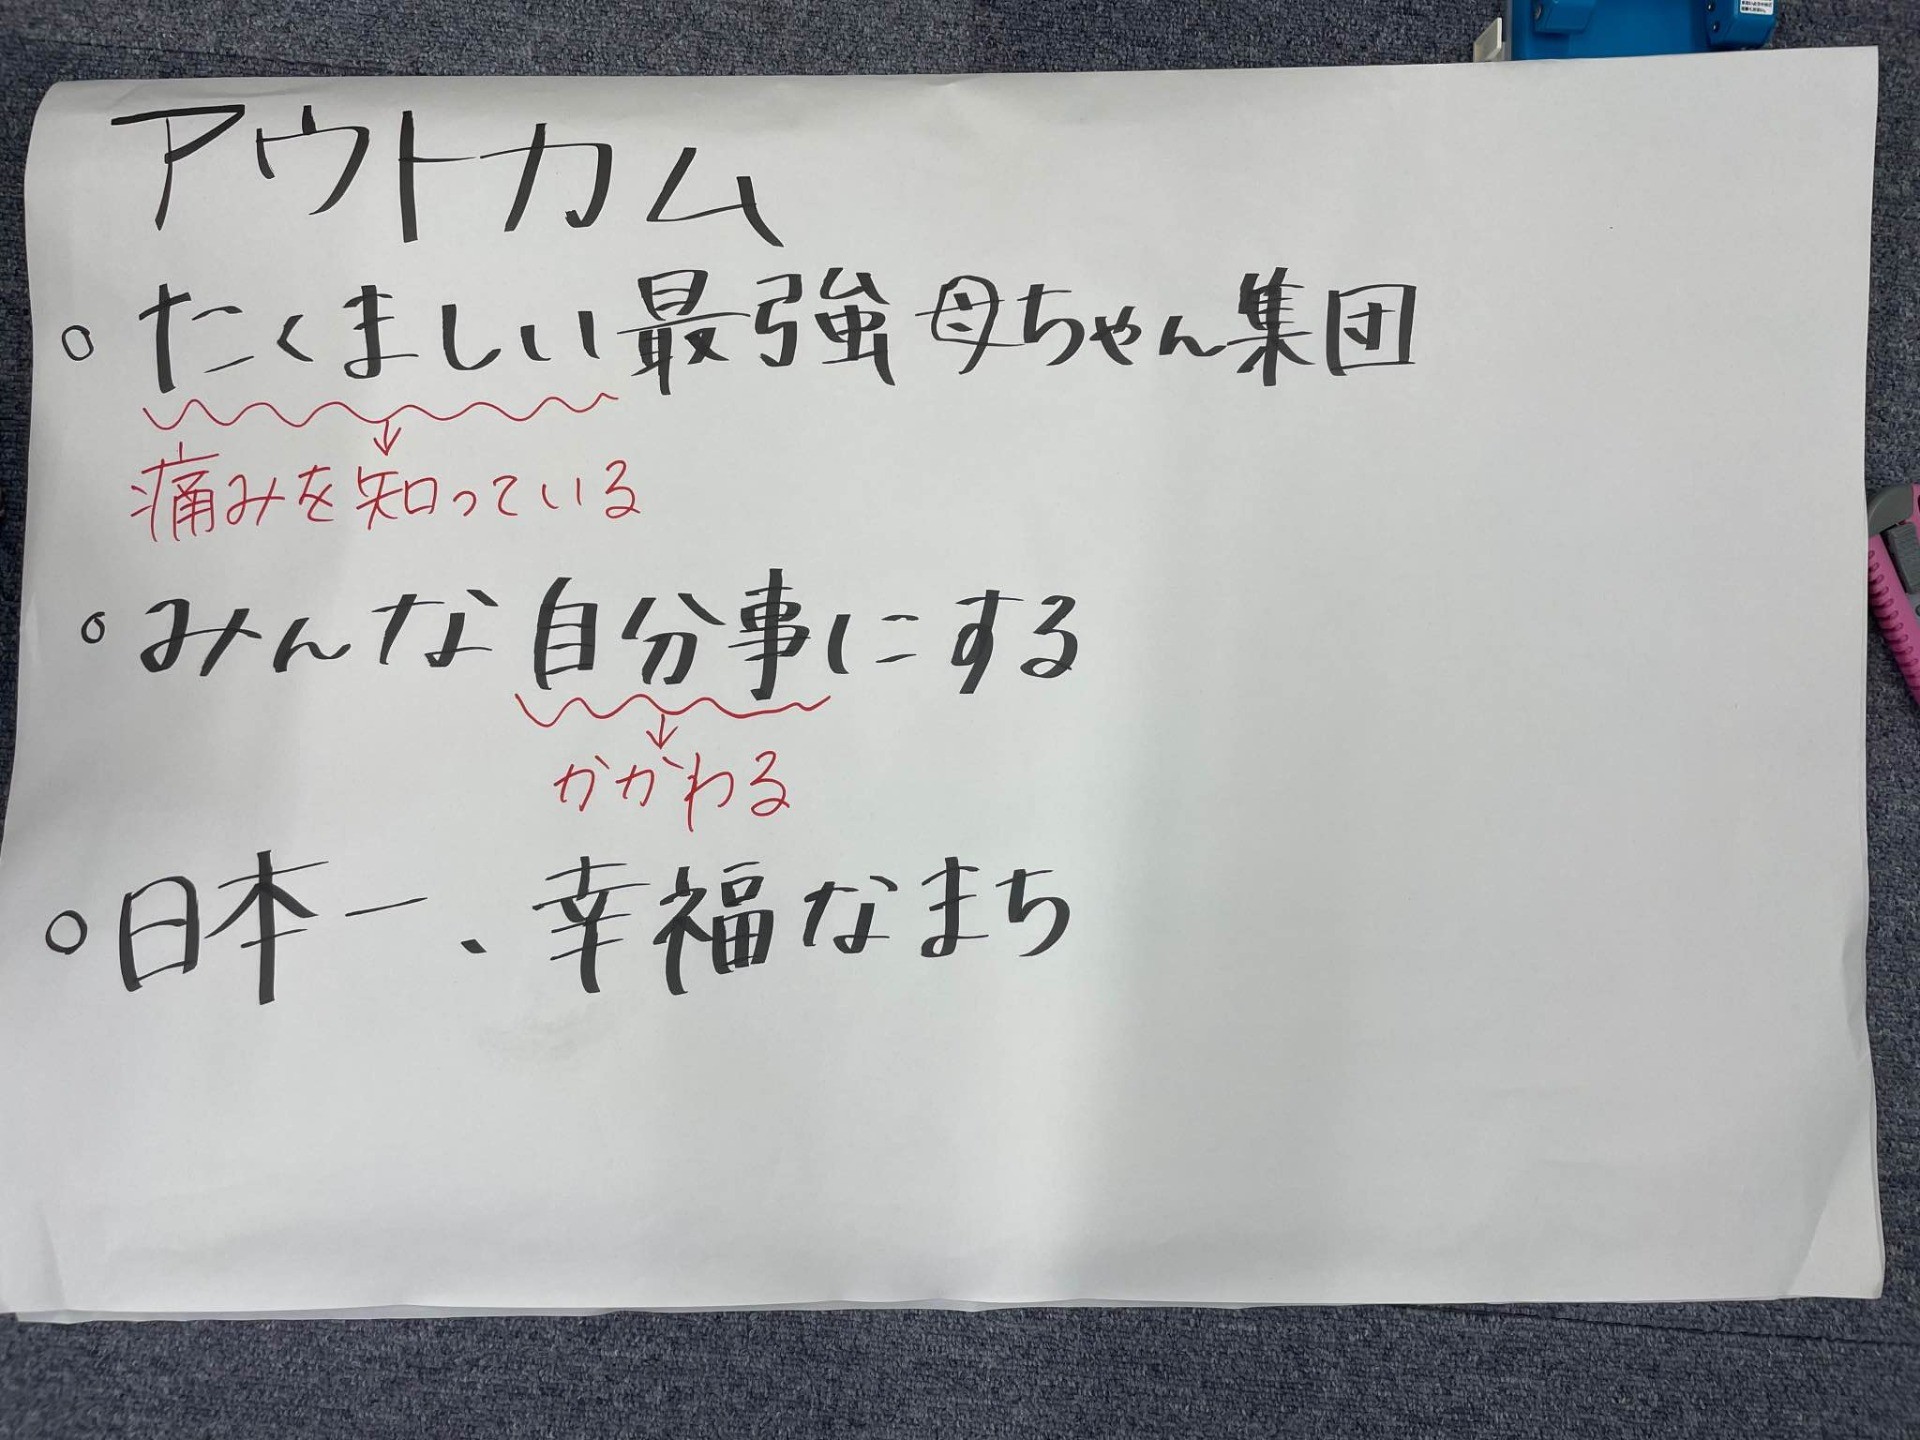 アウトカム
○ たくましい最強母ちゃん集団
↓
痛みを知っている
○ みんな自分事にする
↓
かかわる
○ 日本一、幸福なまち